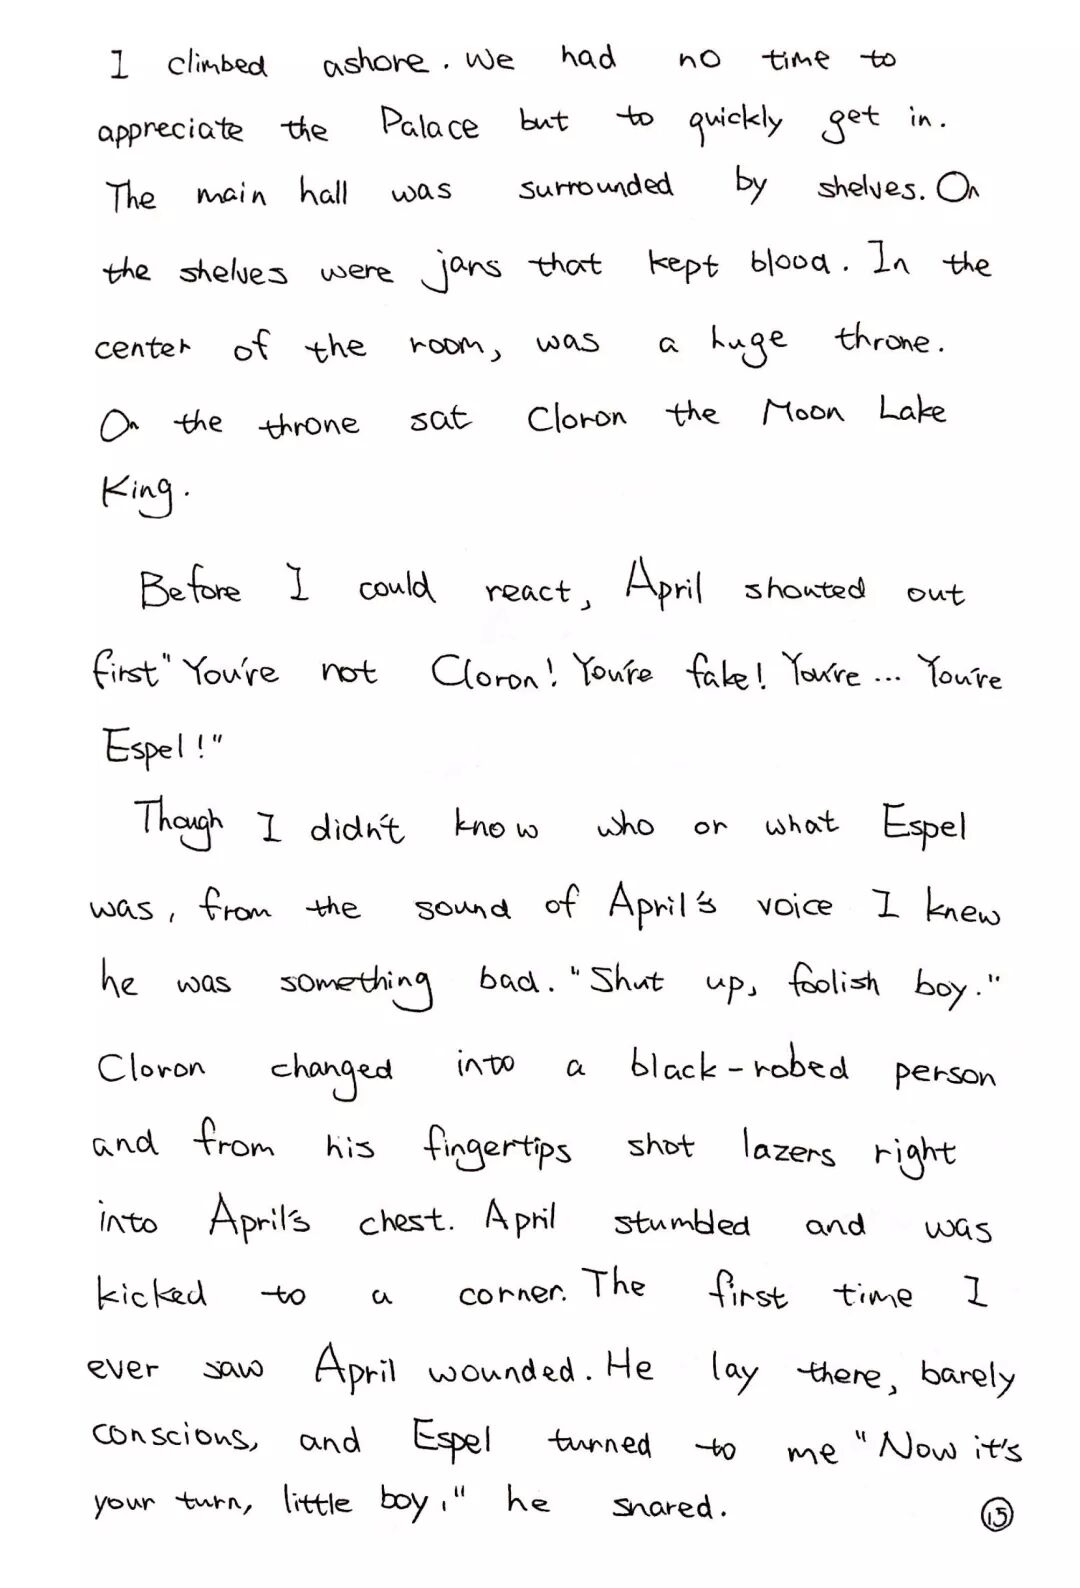 I climbed ashore. We had no time to
appreciate the Palace but to quickly get in.
The main hall was surrounded by shelves. On
the shelves were jars that kept blood. In the
center of the room, was a huge throne.
On the throne sat Cloron the Moon Lake
King.
Before I could react, April shouted out
first "You're not Cloron! You're fake! You're ... You're
Espel!"
Though I didn't know who or what Espel
was, from the sound of April's voice I knew
he was something bad. "Shut up, foolish boy."
Cloron changed into a black-robed person
and from his fingertips shot lazers right
into April's chest. April stumbled and was
kicked to a corner. The first time I
ever saw April wounded. He lay there, barely
conscious, and Espel turned to me "Now it's
your turn, little boy," he snared.
15